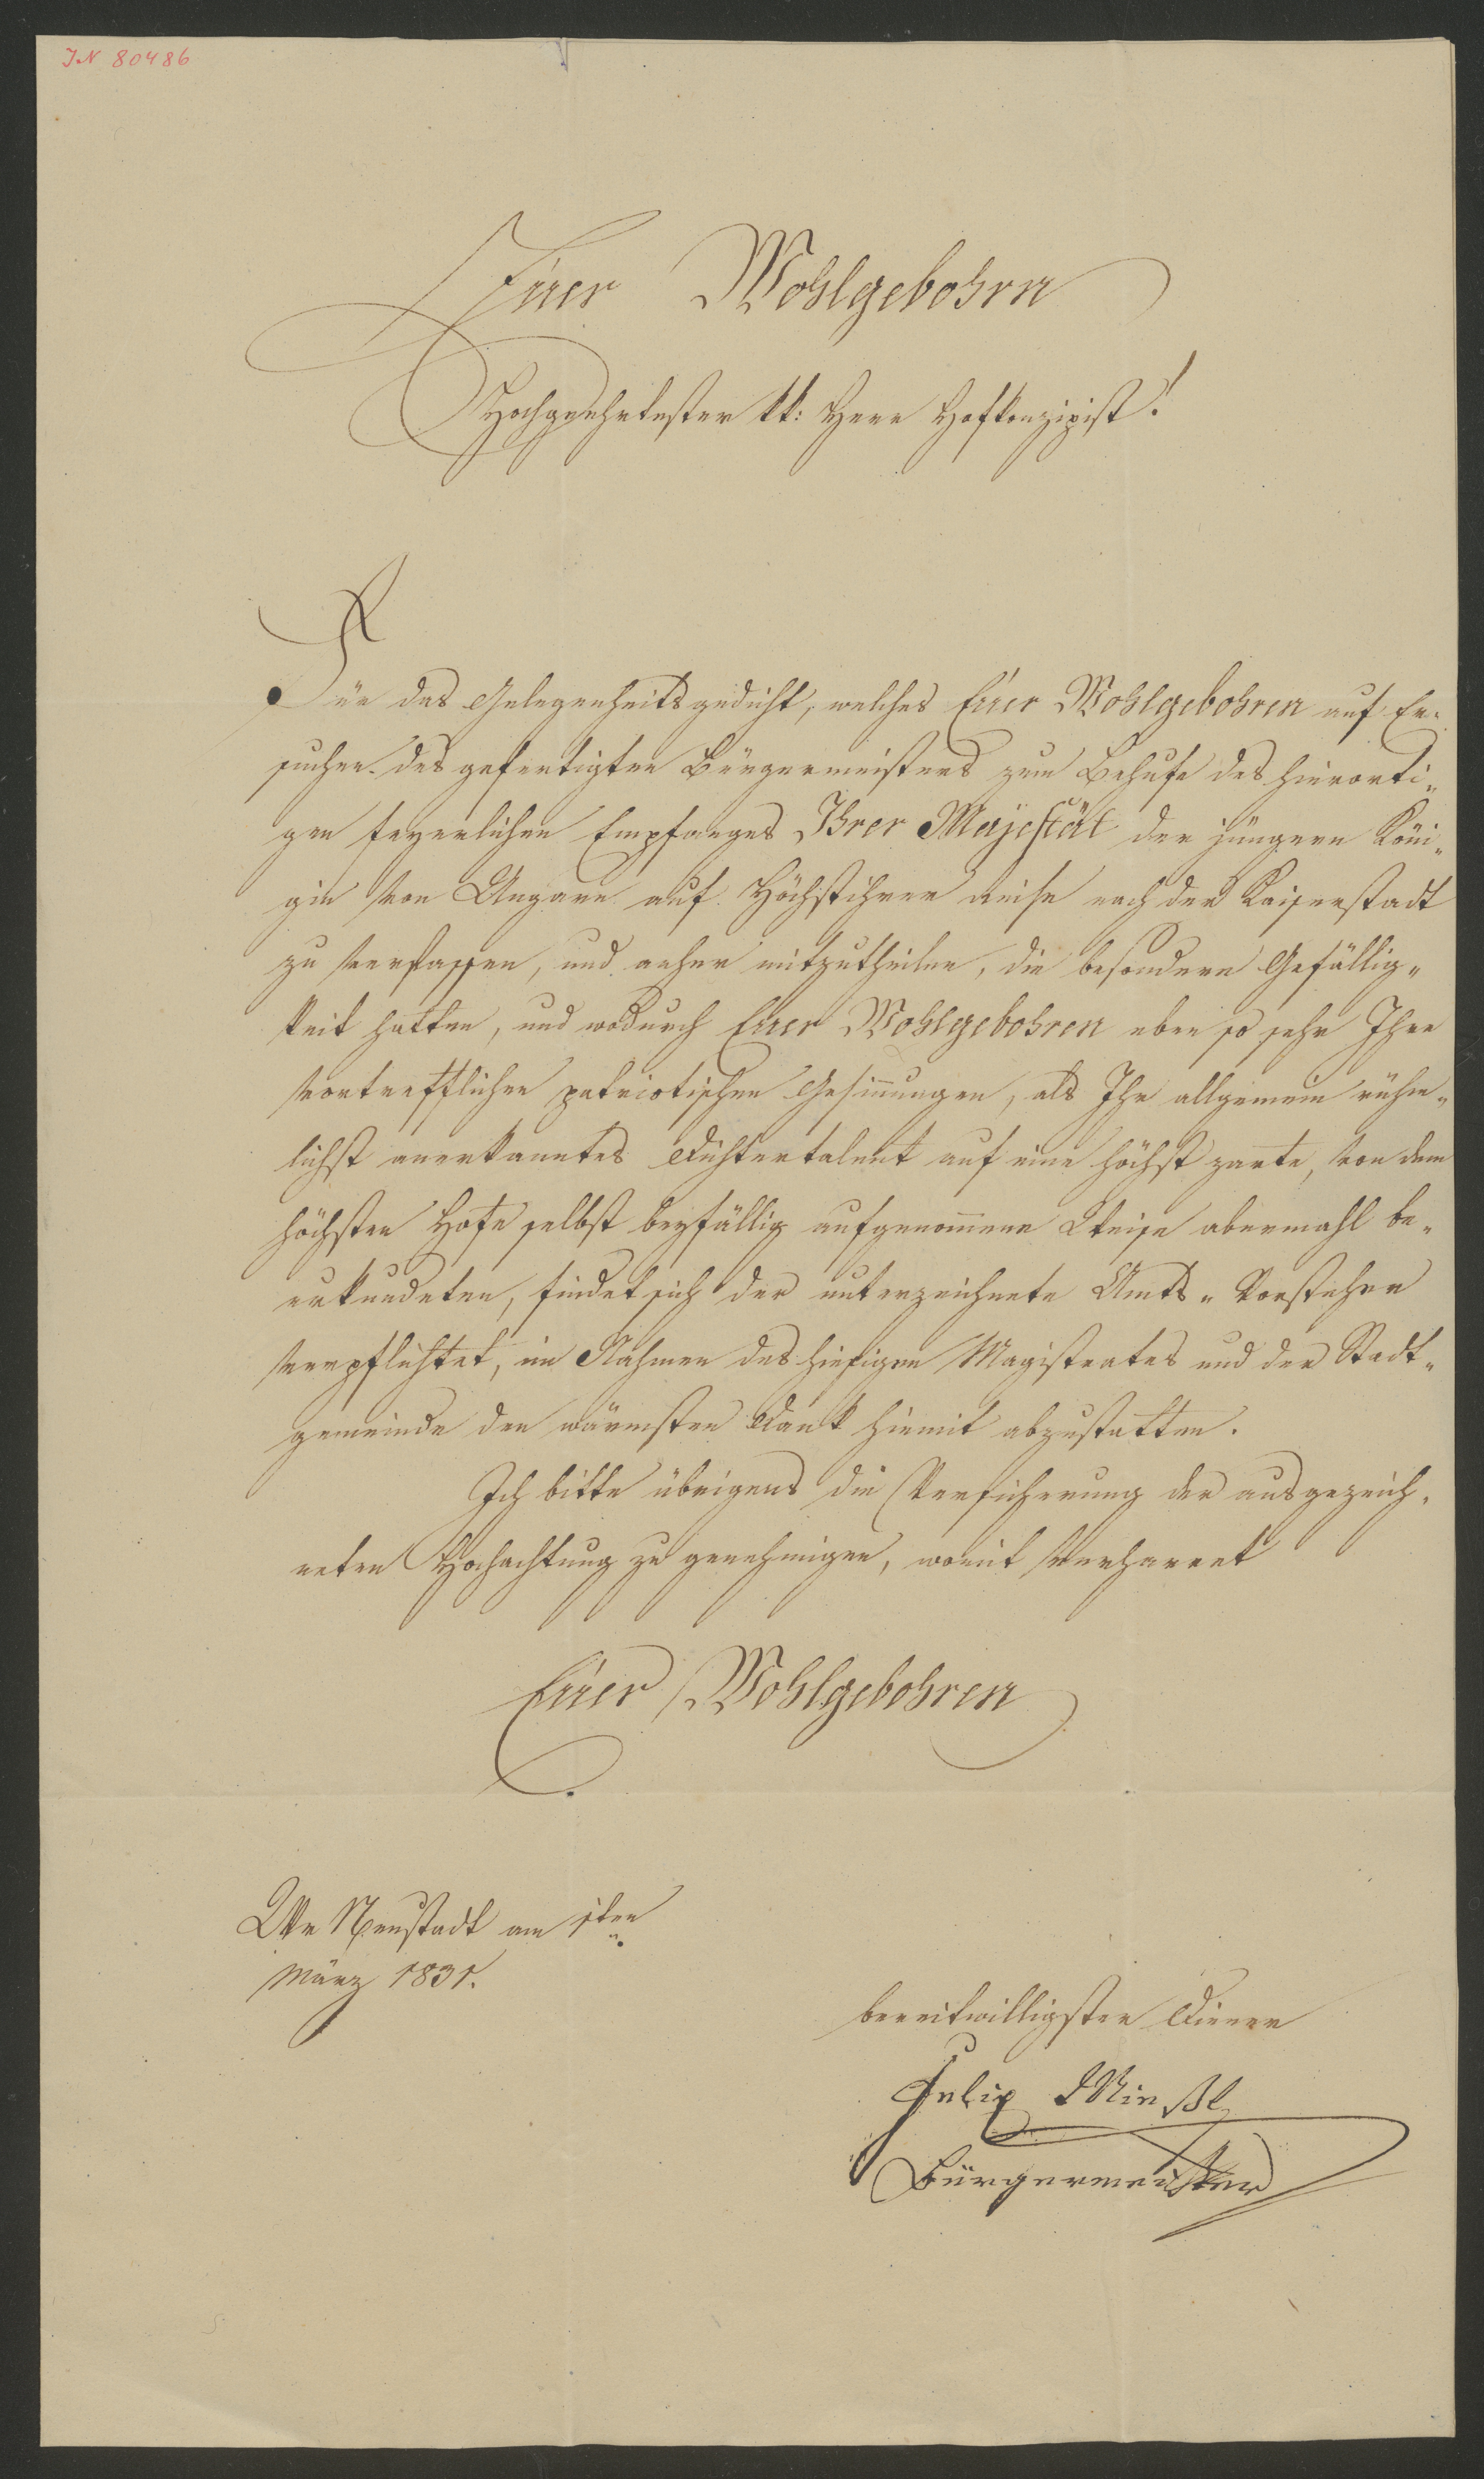 IN 80486
Euer Wohlgebohrn
Hochgeehrtester kk: Herr Hofkonzipist!
Für das Gelegenheitsgedicht, welches Euer Wohlgebohren auf Er-
suchen des gefertigten Bürgermeisters zum Behufe des hierorti-
gen feyerlichen Empfanges Ihrer Majestät der jüngern Köni-
gin von Ungarn auf Höchstihrer Reise nach der Kaiserstadt
zu verfassen, und anher mitzutheilen, die besondere Gefällig-
keit hatten, und wodurch Euer Wohlgebohren eben so sehr Ihre
vortrefflichen patriotischen Gesinnungen, als Ihr allgemein rühm-
lichst anerkanntes Dichtertalent auf eine höchst zarte, von dem
höchsten Hofe selbst beyfällig aufgenommene Weise abermahl be-
urkundeten, findet sich der unterzeichnete Amts-Vorsteher
verpflichtet, im Nahmen des hiesigen Magistrates und der Stadt-
gemeinde den wärmsten Dank hiemit abzustatten.
Ich bitte übrigens die Versicherung der ausgezeich-
neten Hochachtung zu genehmigen, womit verharret
Euer Wohlgebohren
Wr Neustadt am 1ten
März 1831.
bereitwilligster Diener
Felix Mießl
Bürgermeister